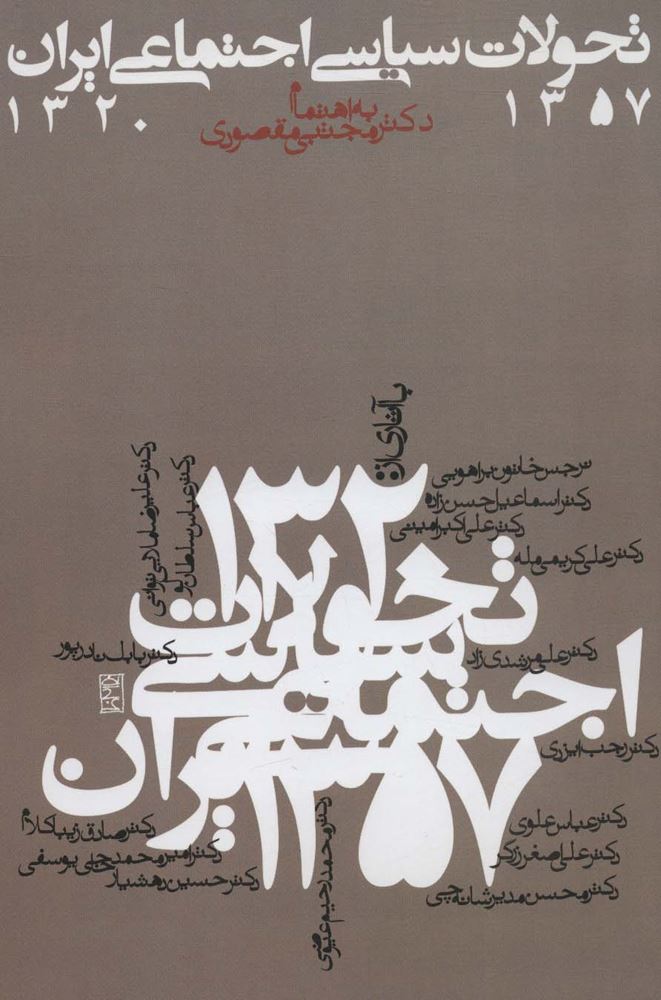 تحولات سیاسی اجتماعی ایران
۱۳۲۰ ۱۳۵۷
به اهتمام
دکتر مجتبی مقصودی
با آثاری از:
نرجس خاتون براهویی
دکتر اسماعیل حسن زاده
دکتر علی اکبر امینی
دکتر علی کریمی مله
دکتر علیرضا ملایی توانی
دکتر عباس سلطان لو
دکتر علی مرشدی زاد
دکتر بابک نادرپور
دکتر رجب ایزدی
دکتر عباس علوی
دکتر علی صغر زرگر
دکتر محسن مدیر شانه چی
دکتر محمد رحیم عیوضی
دکتر صادق زیبا کلام
دکتر امیر محمد حاجی یوسفی
دکتر حسین رهشیار
۱۳۲۰
تحولات
سیاسی
اجتماعی
ایران
۱۳۵۷